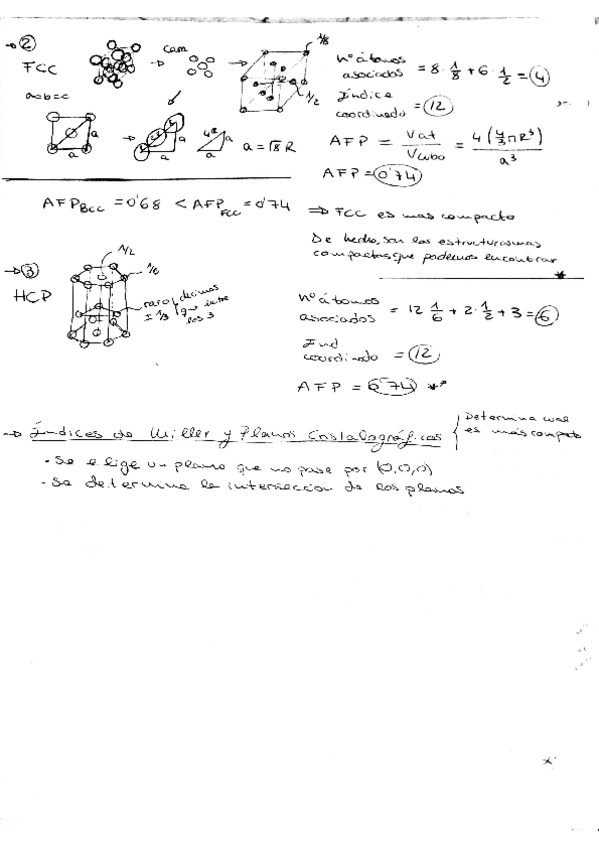 → ② FCC
cara
1/8
1/2
a=b=c
nº átomos asociados = 8 · 1/8 + 6 · 1/2 = 4
Índice coordinado = 12
a a a 4R a a a = √8 R
AFP = Vat / Vcubo = 4 (4/3 π R³) / a³
AFP = 0'74
AFP BCC = 0'68 < AFP FCC = 0'74 ⇒ FCC es mas compacto
De hecho, son las estructuras mas
compactas que podemos encontrar
*
→ ③ HCP
1/2
1/6
nº átomos asociados = 12 1/6 + 2 · 1/2 + 3 = 6
Ind coordinado = 12
AFP = 0'74 **
→ Índices de Miller y Planos Cristalográficos { Determina cual
es más compacto
- Se elige un plano que no pase por (0,0,0)
- Se determina la interseccion de los planos